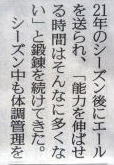 21年のシーズン後にエール
を送られ、「能力を伸ばせ
る時間はそんなに多くな
い」と鍛錬を続けてきた。
シーズン中も体調管理を